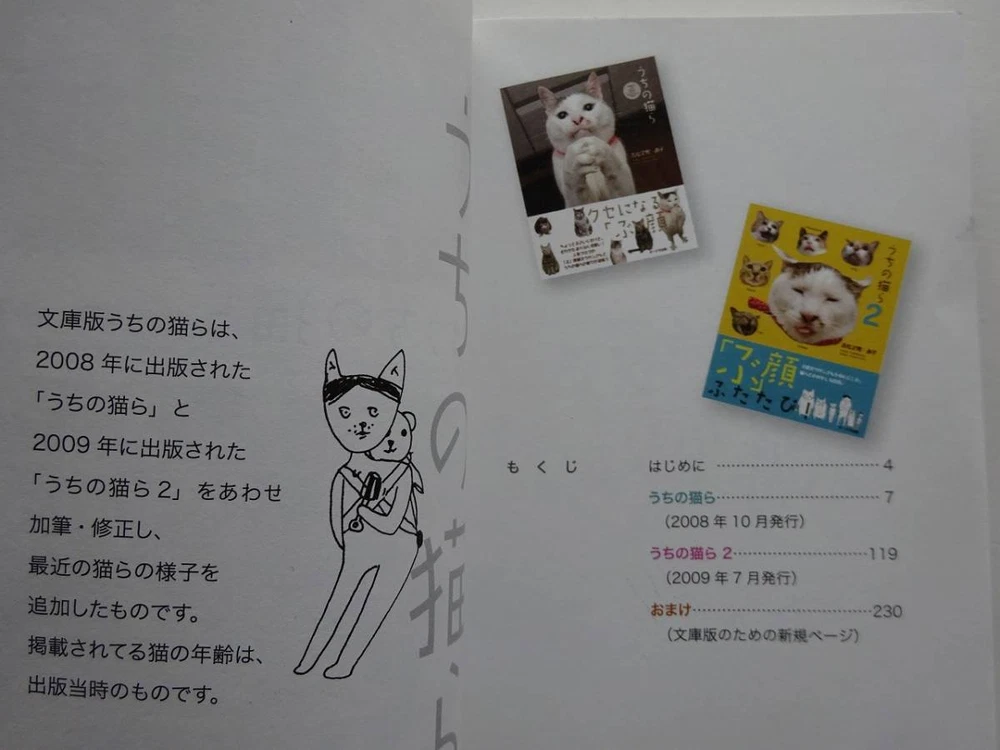 文庫版うちの猫らは、
2008年に出版された
「うちの猫ら」と
2009年に出版された
「うちの猫ら2」をあわせ
加筆・修正し、
最近の猫らの様子を
追加したものです。
掲載されてる猫の年齢は、
出版当時のものです。
うちの猫ら
うちの猫ら
クセになる
「ぶ顔」
うちの猫ら2
「ぶ顔」
ふたたび!
もくじ
はじめに ………… 4
うちの猫ら ………… 7
(2008年10月発行)
うちの猫ら 2 ………… 119
(2009年7月発行)
おまけ ………… 230
(文庫版のための新規ページ)